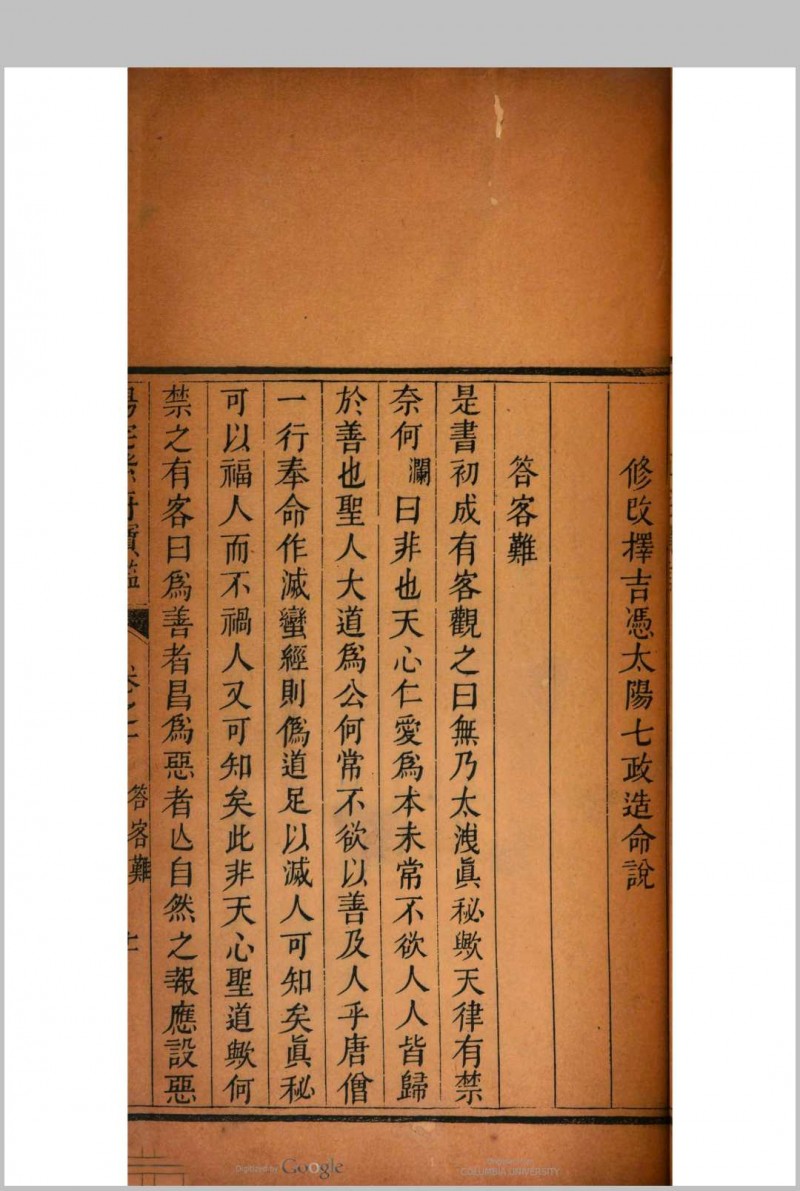 修改擇吉憑太陽七政造命說
答客難
是書初成有客觀之曰無乃太洩眞秘歟天律有禁
奈何瀾曰非也天心仁愛爲本未常不欲人人皆歸
於善也聖人大道爲公何常不欲以善及人乎唐僧
一行奉命作滅蠻經則僞道足以滅人可知矣眞秘
可以福人而不禍人又可知矣此非天心聖道歟何
禁之有客曰爲善者昌爲惡者亾自然之報應設惡
答客難
Digitized by Google
COLUMBIA UNIVERSITY